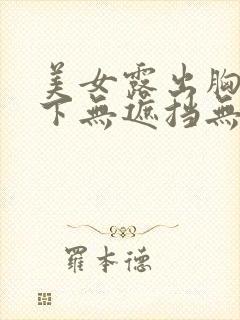 美女露出胸
下無遮挡無
羅本德